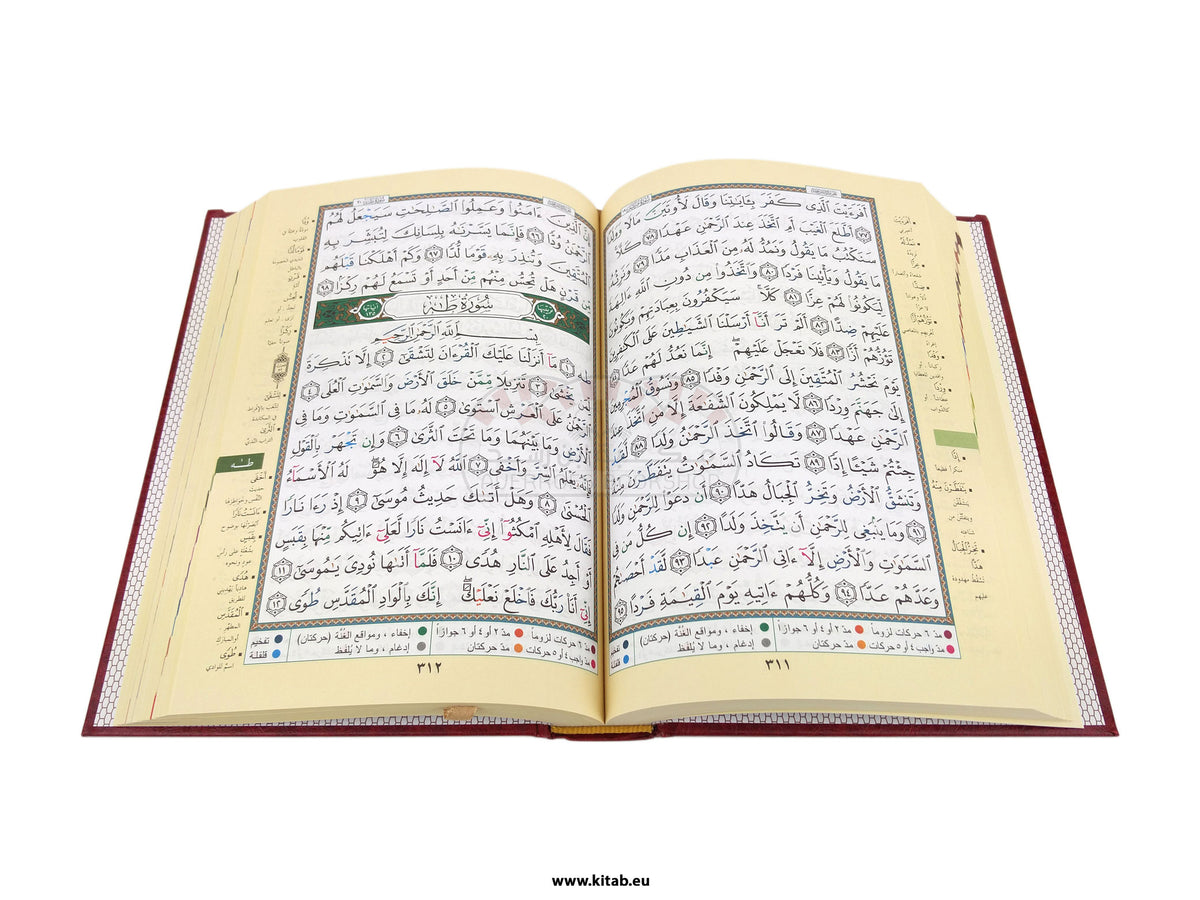 أَفَرَءَيْتَ ٱلَّذِى كَفَرَ بِـَٔايَـٰتِنَا وَقَالَ لَأُوتَيَنَّ مَالًا وَوَلَدًا
٧٧ أَطَّلَعَ ٱلْغَيْبَ أَمِ ٱتَّخَذَ عِندَ ٱلرَّحْمَـٰنِ عَهْدًا ٧٨ كَلَّا
سَنَكْتُبُ مَا يَقُولُ وَنَمُدُّ لَهُۥ مِنَ ٱلْعَذَابِ مَدًّا ٧٩ وَنَرِثُهُۥ
مَا يَقُولُ وَيَأْتِينَا فَرْدًا ٨٠ وَٱتَّخَذُوا۟ مِن دُونِ ٱللَّهِ ءَالِهَةً
لِّيَكُونُوا۟ لَهُمْ عِزًّا ٨١ كَلَّا سَيَكْفُرُونَ بِعِبَادَتِهِمْ وَيَكُونُونَ
عَلَيْهِمْ ضِدًّا ٨٢ أَلَمْ تَرَ أَنَّآ أَرْسَلْنَا ٱلشَّيَـٰطِينَ عَلَى ٱلْكَـٰفِرِينَ
تَؤُزُّهُمْ أَزًّا ٨٣ فَلَا تَعْجَلْ عَلَيْهِمْ إِنَّمَا نَعُدُّ لَهُمْ عَدًّا
يَوْمَ نَحْشُرُ ٱلْمُتَّقِينَ إِلَى ٱلرَّحْمَـٰنِ وَفْدًا ٨٥ وَنَسُوقُ ٱلْمُجْرِمِينَ
إِلَىٰ جَهَنَّمَ وِرْدًا ٨٦ لَّا يَمْلِكُونَ ٱلشَّفَـٰعَةَ إِلَّا مَنِ ٱتَّخَذَ عِندَ
ٱلرَّحْمَـٰنِ عَهْدًا ٨٧ وَقَالُوا۟ ٱتَّخَذَ ٱلرَّحْمَـٰنُ وَلَدًا ٨٨ لَّقَدْ
جِئْتُمْ شَيْـًٔا إِدًّا ٨٩ تَكَادُ ٱلسَّمَـٰوَٰتُ يَتَفَطَّرْنَ مِنْهُ
وَتَنشَقُّ ٱلْأَرْضُ وَتَخِرُّ ٱلْجِبَالُ هَدًّا ٩٠ أَن دَعَوْا۟ لِلرَّحْمَـٰنِ وَلَدًا
٩١ وَمَا يَنۢبَغِى لِلرَّحْمَـٰنِ أَن يَتَّخِذَ وَلَدًا ٩٢ إِن كُلُّ مَن فِى
ٱلسَّمَـٰوَٰتِ وَٱلْأَرْضِ إِلَّآ ءَاتِى ٱلرَّحْمَـٰنِ عَبْدًا ٩٣ لَّقَدْ أَحْصَىٰهُمْ
وَعَدَّهُمْ عَدًّا ٩٤ وَكُلُّهُمْ ءَاتِيهِ يَوْمَ ٱلْقِيَـٰمَةِ فَرْدًا ٩٥
مدّ ٦ حركات لزوماً مدّ ٢ أو ٤ أو ٦ جوازاً إخفاء ، ومواقع الغُنَّة (حركتان)
مدّ واجب ٤ أو ٥ حركات مدّ حركتان إدغام ، وما لا يُلفظ
٣١١
إِنَّ ٱلَّذِينَ ءَامَنُوا۟ وَعَمِلُوا۟ ٱلصَّـٰلِحَـٰتِ سَيَجْعَلُ لَهُمُ
ٱلرَّحْمَـٰنُ وُدًّا ٩٦ فَإِنَّمَا يَسَّرْنَـٰهُ بِلِسَانِكَ لِتُبَشِّرَ بِهِ
ٱلْمُتَّقِينَ وَتُنذِرَ بِهِۦ قَوْمًا لُّدًّا ٩٧ وَكَمْ أَهْلَكْنَا قَبْلَهُم
مِّن قَرْنٍ هَلْ تُحِسُّ مِنْهُم مِّنْ أَحَدٍ أَوْ تَسْمَعُ لَهُمْ رِكْزًۢا ٩٨
سُورَةُ طه
آياتها ١٣٥
بِسْمِ ٱللَّهِ ٱلرَّحْمَـٰنِ ٱلرَّحِيمِ
طه ١ مَآ أَنزَلْنَا عَلَيْكَ ٱلْقُرْءَانَ لِتَشْقَىٰٓ ٢ إِلَّا تَذْكِرَةً
لِّمَن يَخْشَىٰ ٣ تَنزِيلًا مِّمَّنْ خَلَقَ ٱلْأَرْضَ وَٱلسَّمَـٰوَٰتِ ٱلْعُلَى ٤
ٱلرَّحْمَـٰنُ عَلَى ٱلْعَرْشِ ٱسْتَوَىٰ ٥ لَهُۥ مَا فِى ٱلسَّمَـٰوَٰتِ وَمَا فِى
ٱلْأَرْضِ وَمَا بَيْنَهُمَا وَمَا تَحْتَ ٱلثَّرَىٰ ٦ وَإِن تَجْهَرْ بِٱلْقَوْلِ
فَإِنَّهُۥ يَعْلَمُ ٱلسِّرَّ وَأَخْفَى ٧ ٱللَّهُ لَآ إِلَـٰهَ إِلَّا هُوَ لَهُ ٱلْأَسْمَآءُ
ٱلْحُسْنَىٰ ٨ وَهَلْ أَتَىٰكَ حَدِيثُ مُوسَىٰٓ ٩ إِذْ رَءَا نَارًا
فَقَالَ لِأَهْلِهِ ٱمْكُثُوٓا۟ إِنِّىٓ ءَانَسْتُ نَارًا لَّعَلِّىٓ ءَاتِيكُم مِّنْهَا بِقَبَسٍ
أَوْ أَجِدُ عَلَى ٱلنَّارِ هُدًى ١٠ فَلَمَّآ أَتَىٰهَا نُودِىَ يَـٰمُوسَىٰٓ ١١
إِنِّىٓ أَنَا۠ رَبُّكَ فَٱخْلَعْ نَعْلَيْكَ إِنَّكَ بِٱلْوَادِ ٱلْمُقَدَّسِ طُوًى ١٢
مدّ ٦ حركات لزوماً مدّ ٢ أو ٤ أو ٦ جوازاً إخفاء ، ومواقع الغُنَّة (حركتان) تفخيم
مدّ واجب ٤ أو ٥ حركات مدّ حركتان إدغام ، وما لا يُلفظ قلقلة
٣١٢
طه
www.kitab.eu